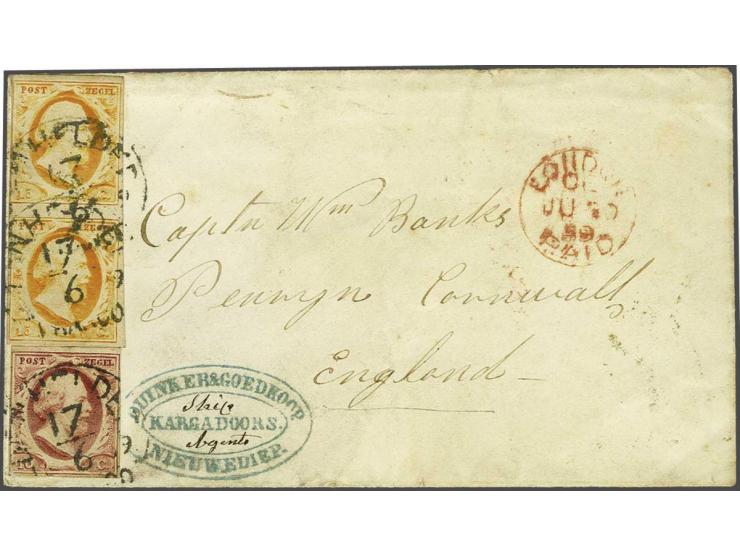 POST ZEGEL
17
6
POST ZEGEL
17
6
POST ZEGEL
17
6
LONDON
JU
59
PAID
Captn Wm Banks
Penryn Cornwall
England
& GOEDKOOP
Ship
KARGADOORS.
Agents
NIEUWEDIEP.